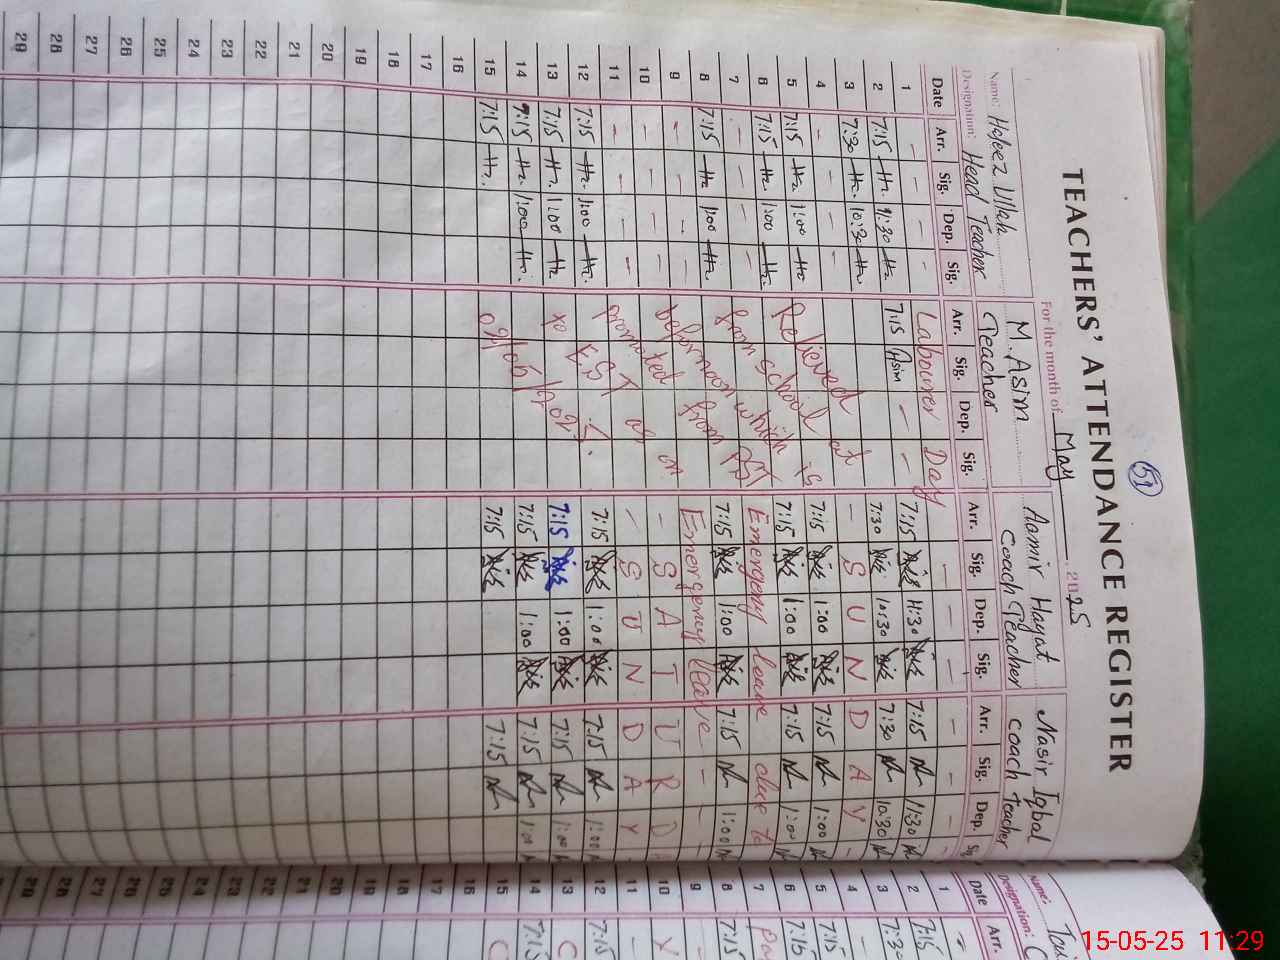 51
TEACHERS' ATTENDANCE REGISTER
For the month of May 2025
Name: Hafeez Ullah M. Asim Aamir Hayat Nasir Iqbal
Designation: Head Teacher Teacher Coach Teacher coach teacher
Date Arr. Sig. Dep. Sig. Arr. Sig. Dep. Sig. Arr. Sig. Dep. Sig. Arr. Sig. Dep.
1 - - - - Labourer Day - - - - - - -
2 7:15 Hz. 9:30 Hz 7:15 Asim - - 7:15 11:30 7:15 11:30
3 7:30 Hz 10:30 Hz 7:30 10:30 7:30 10:30
4 - - - - - S U N D A Y -
5 7:15 Hz. 1:00 Hz 7:15 1:00 7:15 1:00
6 7:15 Hz. 1:00 Hz. 7:15 1:00 7:15 1:00
7 - - - - Emergency leave due to
8 7:15 Hz 1:00 Hz. 7:15 1:00 7:15 1:00
9 - - - - Emergency leave - - -
10 - - - - - S A T U R D
11 - - - - - S U N D A Y
12 7:15 Hz. 1:00 Hz. 7:15 1:00 7:15 1:00
13 7:15 Hz. 1:00 Hz 7:15 1:00 7:15 1:00
14 7:15 Hz. 1:00 Hz. 7:15 1:00 7:15 1:00
15 7:15 Hz. 7:15 7:15
16
17
18
19
20
21
22
23
24
25
26
27
28
29
Relieved at
from school is
beforenoon which
promoted from PST
to EST as on
02/05/2025.
Name:
Designation:
Date Arr.
1
2 7:15
3 7:3
4 -
5 7:15
6 7:16
7
8 7:15
9 -
10 Y
11 -
12 7:15
13 C
14 7:15
15 C
16
17
18
19
20
21
22
23
24
25
26
27
28
15-05-25 11:29